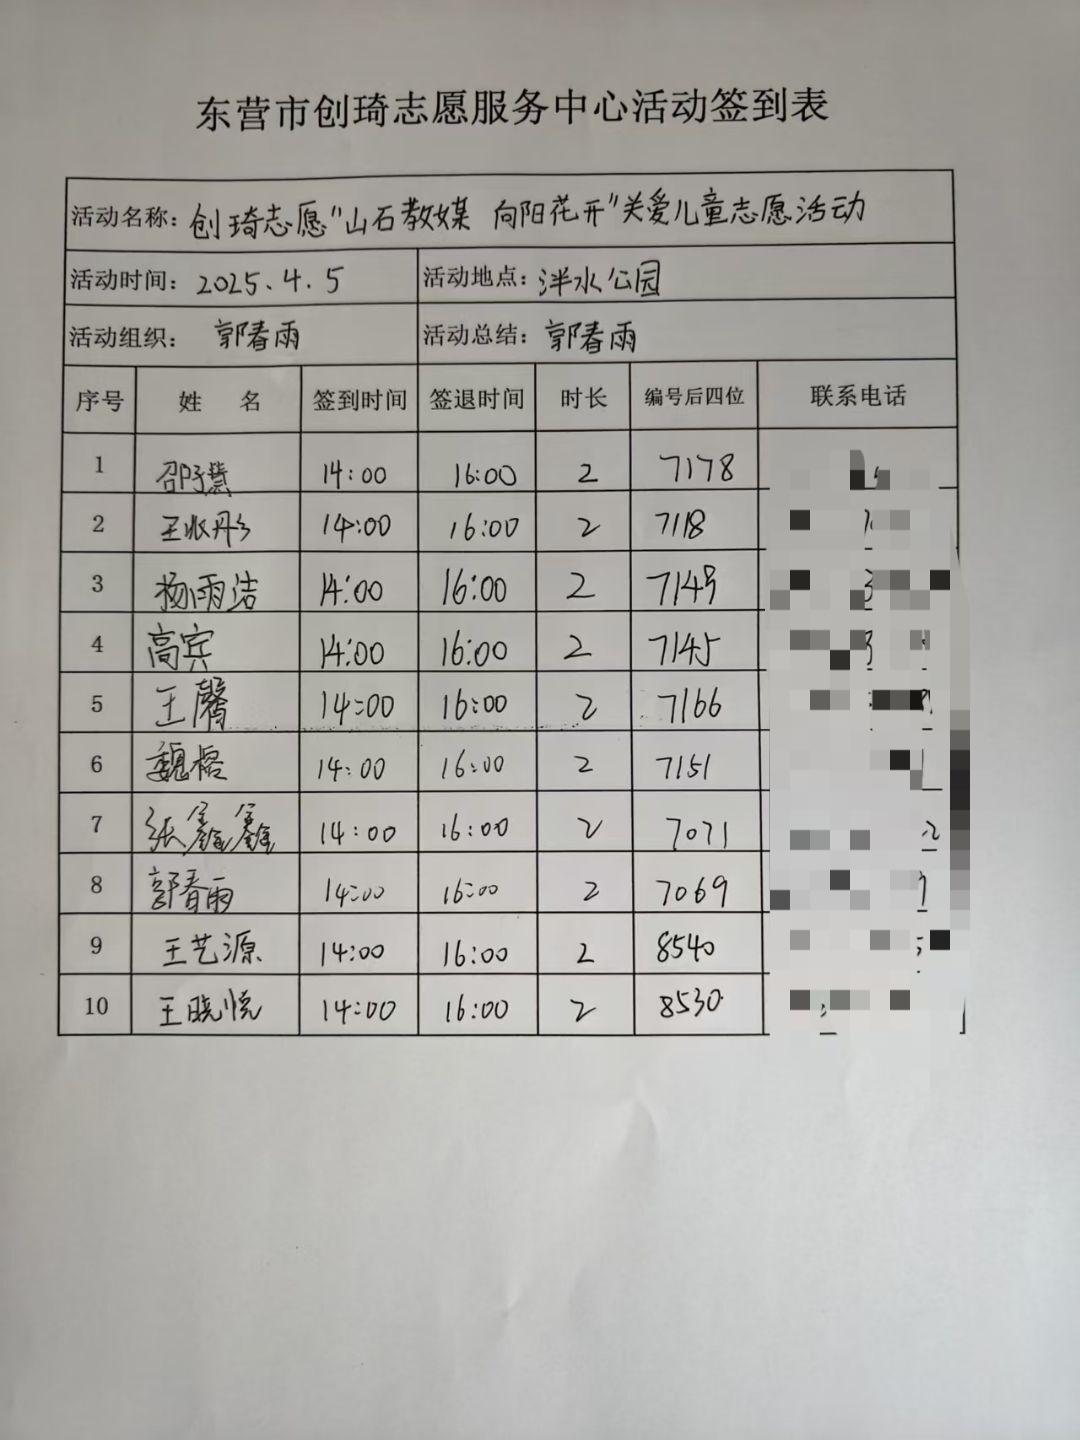 东营市创琦志愿服务中心活动签到表
活动名称：创琦志愿"山石教媒 向阳花开"关爱儿童志愿活动
活动时间：2025.4.5 活动地点：泮水公园
活动组织：郭春雨 活动总结：郭春雨
序号 姓 名 签到时间 签退时间 时长 编号后四位 联系电话
1 14:00 16:00 2 7178
2 14:00 16:00 2 7118
3 杨雨洁 14:00 16:00 2 7149
4 高宾 14:00 16:00 2 7145
5 王馨 14:00 16:00 2 7166
6 魏榕 14:00 16:00 2 7151
7 张鑫鑫 14:00 16:00 2 7071
8 郭春雨 14:00 16:00 2 7069
9 王艺源 14:00 16:00 2 8540
10 王晓悦 14:00 16:00 2 8530